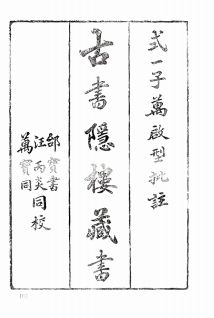 式一子萬啟型批註
古書隱樓藏書
邰寶書
汪丙炎 同校
萬寶同